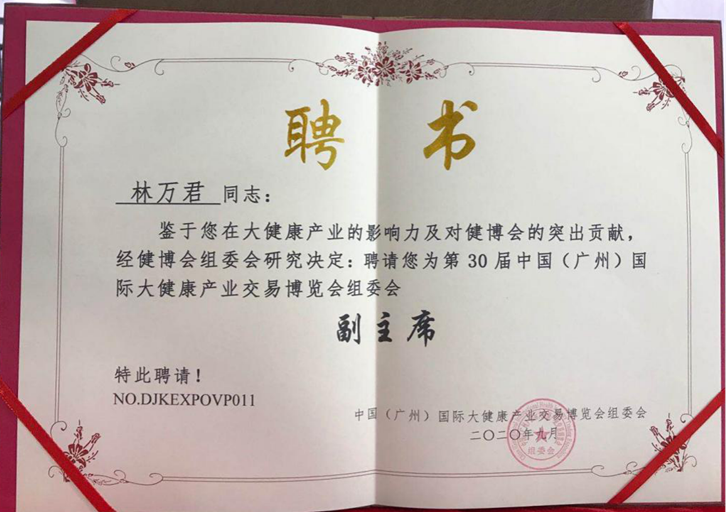 聘书
林万君 同志：
鉴于您在大健康产业的影响力及对健博会的突出贡献，
经健博会组委会研究决定：聘请您为第 30 届中国（广州）国
际大健康产业交易博览会组委会
副主席
特此聘请！
NO.DJKEXPOVP011
中国（广州）国际大健康产业交易博览会组委会
二〇二〇年九月
组委会